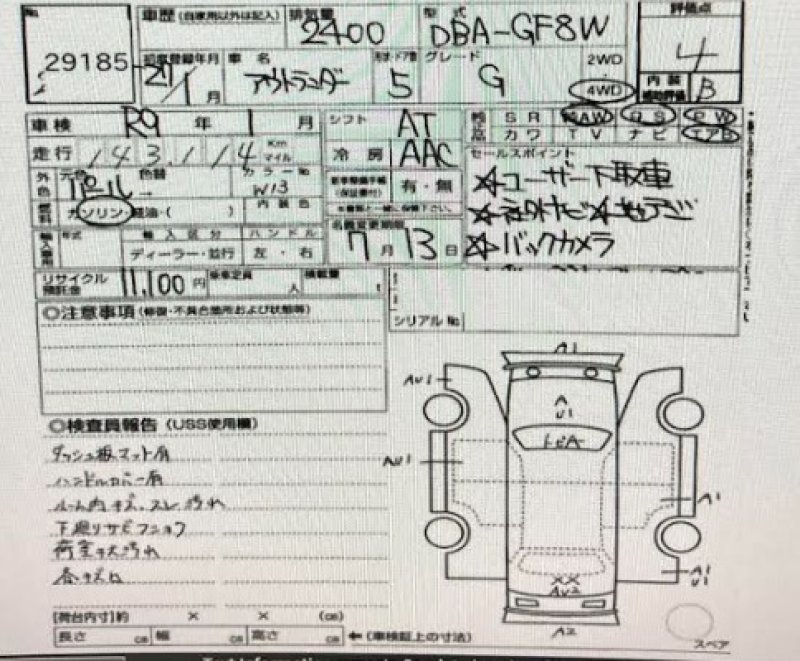 No.
29185
車歴(自家用以外は記入)
排気量
2400
型式
DBA-GF8W
評価点
4
初度登録年月
27/1月
車名
アウトランダー
形状・ドア数
5
グレード
G
2WD
4WD
内装
補助評価
B
車検
R9年1月
シフト
AT
SR
AW
PS
PW
カワ
TV
ナビ
エアB
走行
143,114
Km
マイル
冷房
AAC
セールスポイント
外色
元色
パール
色替
カラーNo
W13
有・無
☆ユーザー下取車
燃料
ガソリン・軽油・( )
内装色
☆社外ナビ☆地デジ
輸入車用
年式
輸入区分
ディーラー・並行
ハンドル
左・右
名義変更期限
7月13日
☆バックカメラ
リサイクル
預託金
11,100円
乗車定員
人
積載量
t
シリアルNo
◎注意事項(修復・不具合箇所および状態等)
◎検査員報告(USS使用欄)
ダッシュ板マット肩
ルーム内キズ、スレ汚れ
下廻りサビ
荷室キズ汚れ
A1
AU1
A
U1
トビA
AU1
A1
A1
U1
XX
AU2
A2
スペア
[荷台内寸]約 × × (cm)
長さ cm 幅 cm 高さ cm ←(車検証上の寸法)